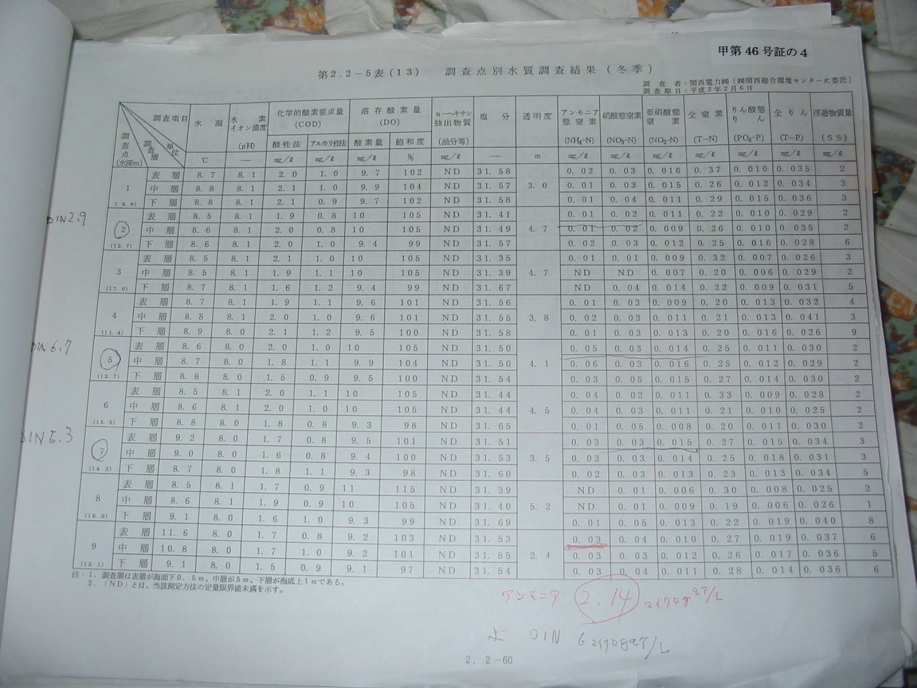 甲第46号証の4
第2.2-5表(13) 調査点別水質調査結果(冬季)
調査者:関西電力㈱(㈱関西総合環境センターに委託)
調査期日:平成2年2月6日
調査点(水深m) 調査層 調査項目 単位 水温 水素イオン濃度(pH) 化学的酸素要求量(COD) 溶存酸素量(DO) n-ヘキサン抽出物質(油分等) 塩分 透明度 アンモニア態窒素(NH₄-N) 硝酸態窒素(NO₃-N) 亜硝酸態窒素(NO₂-N) 全窒素(T-N) りん酸態りん(PO₄-P) 全りん(T-P) 浮遊物質量(SS)
酸性法 アルカリ性法 酸素量 飽和度
℃ — mg/ℓ mg/ℓ mg/ℓ % mg/ℓ — m mg/ℓ mg/ℓ mg/ℓ mg/ℓ mg/ℓ mg/ℓ mg/ℓ
1 表層 8.7 8.1 2.0 1.0 9.7 102 ND 31.58 3.0 0.02 0.03 0.016 0.37 0.010 0.035 2
中層 8.8 8.1 2.1 1.0 9.9 104 ND 31.57 0.01 0.03 0.015 0.26 0.012 0.034 3
下層 8.8 8.1 2.1 0.9 9.7 102 ND 31.58 0.01 0.04 0.011 0.29 0.015 0.036 3
DIN2.9
2 表層 8.5 8.1 1.9 0.8 10 105 ND 31.41 4.7 0.01 0.02 0.011 0.22 0.010 0.029 2
中層 8.6 8.1 2.0 0.8 10 105 ND 31.49 0.01 0.02 0.009 0.26 0.010 0.035 2
(13.7) 下層 8.6 8.1 2.0 1.0 9.4 99 ND 31.57 0.02 0.03 0.012 0.25 0.016 0.028 6
3 表層 8.5 8.1 2.1 1.0 10 105 ND 31.35 4.7 0.01 0.01 0.009 0.32 0.007 0.026 3
中層 8.5 8.1 1.9 1.1 10 105 ND 31.39 ND ND 0.007 0.20 0.006 0.029 2
(17.6) 下層 8.7 8.1 1.6 1.2 9.4 99 ND 31.67 ND 0.04 0.014 0.22 0.009 0.031 5
4 表層 8.7 8.1 1.9 1.1 9.6 101 ND 31.56 3.8 0.01 0.03 0.009 0.20 0.013 0.032 4
中層 8.8 8.1 2.0 1.0 9.6 101 ND 31.55 0.02 0.03 0.011 0.21 0.013 0.041 3
(11.4) 下層 8.9 8.0 2.1 1.2 9.5 100 ND 31.58 0.01 0.03 0.013 0.20 0.016 0.026 9
DIN6.7
5 表層 8.6 8.0 2.0 1.0 10 105 ND 31.50 4.1 0.05 0.03 0.014 0.25 0.011 0.030 2
中層 8.7 8.0 1.8 1.1 9.9 104 ND 31.50 0.06 0.03 0.016 0.25 0.012 0.029 2
(12.7) 下層 8.8 8.0 1.5 0.9 9.5 100 ND 31.54 0.03 0.05 0.015 0.27 0.014 0.030 2
6 表層 8.5 8.1 2.1 1.1 10 105 ND 31.44 4.5 0.04 0.02 0.011 0.33 0.009 0.028 2
中層 8.6 8.1 2.0 1.0 10 105 ND 31.44 0.04 0.03 0.011 0.21 0.010 0.025 2
下層 8.8 8.0 1.8 0.8 9.3 98 ND 31.65 0.01 0.05 0.008 0.20 0.011 0.030 2
DIN5.3
7 表層 9.2 8.0 1.7 0.8 9.5 101 ND 31.51 3.5 0.03 0.03 0.015 0.27 0.015 0.034 3
中層 9.0 8.0 1.6 0.8 9.4 100 ND 31.53 0.03 0.03 0.014 0.25 0.018 0.031 3
下層 8.7 8.0 1.8 1.1 9.3 98 ND 31.60 0.02 0.03 0.013 0.24 0.013 0.034 5
8 表層 8.5 8.1 1.7 0.9 11 115 ND 31.39 5.2 ND 0.01 0.006 0.30 0.008 0.025 2
中層 8.6 8.1 1.9 0.9 10 105 ND 31.40 ND 0.01 0.009 0.19 0.006 0.026 1
下層 9.1 8.0 1.6 1.0 9.3 99 ND 31.69 0.01 0.05 0.013 0.22 0.019 0.040 8
9 表層 11.6 8.0 1.7 0.8 9.2 103 ND 31.53 2.4 0.03 0.04 0.010 0.27 0.019 0.037 6
中層 10.8 8.0 1.7 1.0 9.2 101 ND 31.55 0.03 0.03 0.012 0.26 0.017 0.036 5
(12.1) 下層 9.1 8.0 1.5 0.9 9.1 97 ND 31.54 0.03 0.04 0.011 0.28 0.014 0.036 6
注:1.調査層は表層が海面下0.5m、中層が5m、下層が海底上1mである。
2.「ND」とは、当該測定方法の定量限界値未満を示す。
アンモニア 2.14
DIN 6
2.2-60